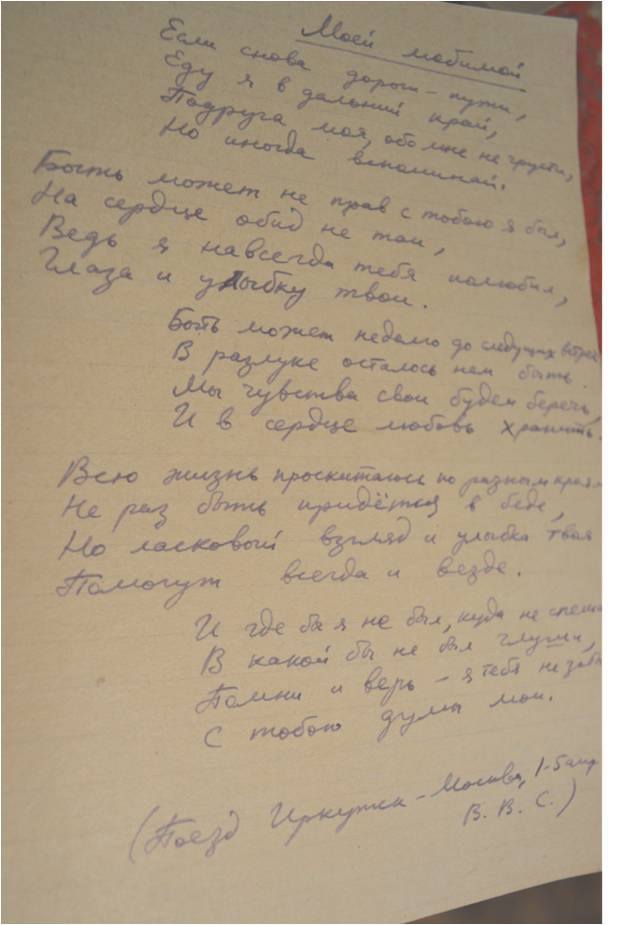 Моей любимой
Если снова дороги - пути,
Еду я в дальний край,
Подруга моя, обо мне не грусти,
Но иногда вспоминай.
Быть может не прав с тобою я был,
На сердце обид не таи,
Ведь я навсегда тебя полюбил,
Глаза и улыбку твои.
Быть может недолго до следущих встреч
В разлуке осталось нам быть.
Мы чувства свои будем беречь,
И в сердце любовь хранить.
Всю жизнь проскитаюсь по разным краям
Не раз быть придётся в беде,
Но ласковый взгляд и улыбка твоя
Помогут всегда и везде.
И где бы я не был, куда не спеши
В какой бы не был глуши,
Помни и верь - я тебя не заб
С тобою думы мои.
(Поезд Иркутск - Москва, 1-5 апр.
В. В. С.)